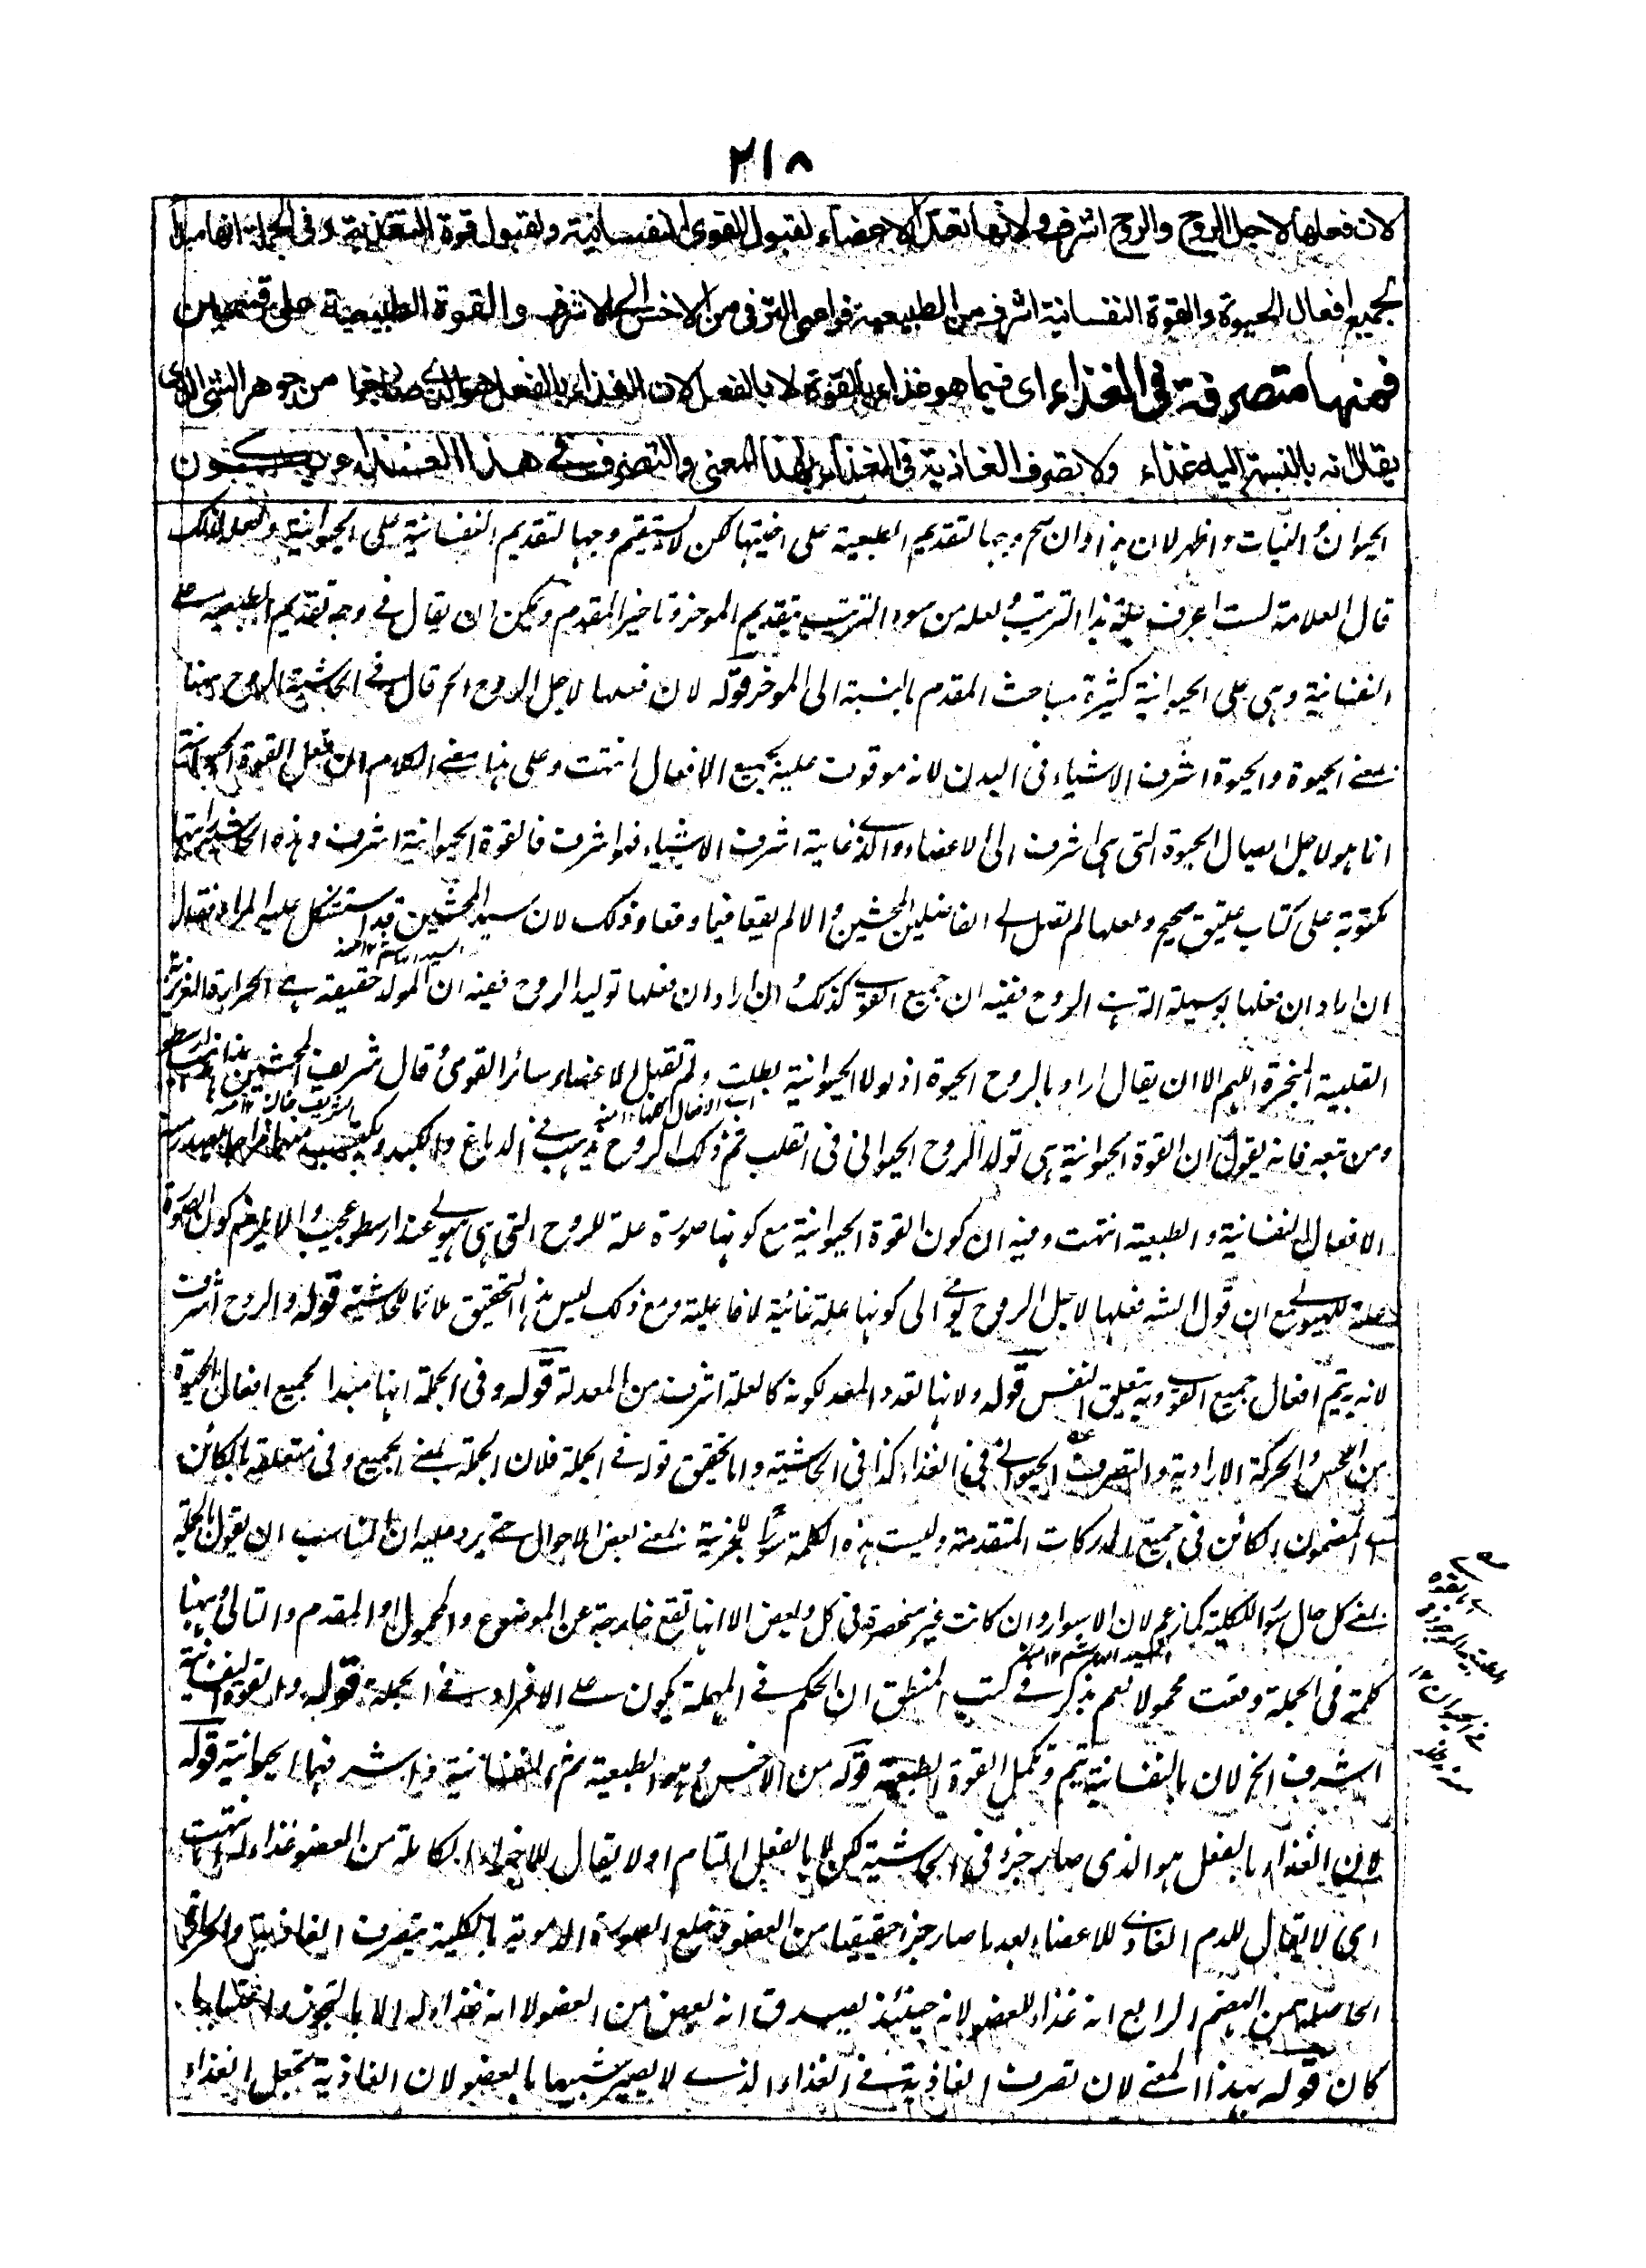 ٢١٨
لان فعلها لاجل الروح والروح اشرف ولانها تعد الاعضاء لقبول القوى النفسانية ولقبول قوة التغذية وفى الجملة انها مبدأ
لجميع افعال الحيوة والقوة النفسانية اشرف من الطبيعية فراعى الترقى من الاخس الى الاشرف والقوة الطبيعية على قسمين
فمنها متصرفة فى الغذاء اى فيما هو غذاء بالقوة لا بالفعل لان الغذاء بالفعل هو الذى صار جزأ من جوهر الشئ الذى
يقال انه بالنسبة اليه غذاء ولا تصرف الغاذية فى الغذاء بهذا المعنى والتصرف فى هذا الغذاء يكون
الحيوان النبات واظهر لان هذا وان صح وجها لتقديم الطبعية على اختيها لكن لا يستقيم وجها لتقديم النفسانية على الحيوانية ولعله لذلك
قال العلامة لست اعرف علة هذا الترتيب لعله من سوء الترتيب بتقديم الموخر وتاخير المقدم ويمكن ان يقال فى وجه تقديم الطبعية على
النفسانية وهى على الحيوانية كثيرة مباحث المقدم بالنسبة الى الموخر قوله لان فعلها لاجل الروح الخ قال فى الحاشية الروح ههنا
بمعنى الحيوة والحيوة اشرف الاشياء فى البدن لانه موقوف عليه جميع الافعال انتهت وعلى هذا معنى الكلام ان فعل القوة الحيوانية
انما هو لاجل ايصال الحيوة التى هى اشرف الى الاعضاء والذى غايته اشرف الاشياء فهو اشرف فالقوة الحيوانية اشرف وهذه الحاشية رايتها
مكتوبة على كتاب عتيق صحيح ولعلها لم تصل الى الفاضلين المحشيين والا لم يقعا فيما وقعا وذلك لان سيد المحشين قد استشكل عليه المراد فقال
ان اراد ان فعلها بوسيلة الروح ففيه ان جميع القوى كذلك وان اراد ان فعلها توليد الروح ففيه ان المولد حقيقة هى الحرارة الغريزية
القلبية المبخرة اللهم الا ان يقال اراد بالروح الحيوة اذ لولا الحيوانية بطلت ولم تقبل الاعضاء سائر القوى وقال شريف المحشين هذا مذهب ارسطو
ومن تبعه فانه يقول ان القوة الحيوانية هى تولد الروح الحيوانى فى القلب ثم ذلك الروح يذهب الى الدماغ والكبد
الافعال النفسانية والطبعية انتهت وفيه ان كون القوة الحيوانية مع كونها صورة علة للروح التى هى هيولى عند ارسطو عجيب والا يلزم كون الصورة
علة للهيولى مع ان قول الشه فعلها لاجل الروح يومى الى كونها علة غائية لا فاعلية ومع ذلك ليس هذا التحقيق ملائما للحاشية قوله والروح اشرف
لانه به يتم افعال جميع القوى وبه يتعلق النفس قوله ولانها تعد والمعد لكونه كالعلة اشرف من المعدلة قوله وفى الجملة انها مبدا لجميع افعال الحيوة
من الحس والحركة الارادية والتصرف الحيوانى فى الغذاء كذا فى الحاشية واما تحقيق قوله فى الجملة فلان الجملة بمعنى الجميع وفى متعلقة بالكائن
المضمون الكائن فى جميع المدركات المتقدمة وليست هذه الكلمة سورا للجزئية بمعنى بعض الاحوال حتى يرد عليه ان المناسب ان يقول بالجملة
بمعنى كل حال سور الكلية كما زعم لان الاسوار وان كانت غير منحصرة فى كل وبعض الا انها تقع خارجة عن الموضوع والمحمول او المقدم والتالى وههنا
كلمة فى الجملة وقعت محمولا نعم يذكر فى كتب المنطق ان الحكم فى المهملة يكون على الافراد فى الجملة قوله والقوة النفسانية
اشرف الخ لان بالنفسانية يتم وتكمل القوة الطبعية قوله من الاخس وهو الطبعية ثم النفسانية اشرف منها الحيوانية قوله
لان الغذاء بالفعل هو الذى صار جزء فى الحاشية لكن لا بالفعل التام اذ لا يقال للاجزاء الكاملة من العضو غذاء له انتهت
اى لا يقال للدم الغاذى للاعضاء بعد ما صار جزءا حقيقيا من العضو وخلع الصورة الدموية بالكلية بتصرف الغاذية والحرارة
الحاصلة من الهضم الرابع انه غذاء للعضو لانه حينئذ يصدق انه بعض من العضو لا انه غذاء له الا بالتجوز واعتبار ما
كان قوله بهذا المعنى لان تصرف الغاذية فى الغذاء الذى لا يصير شبيها بالعضو لان الغاذية تجعل الغذاء